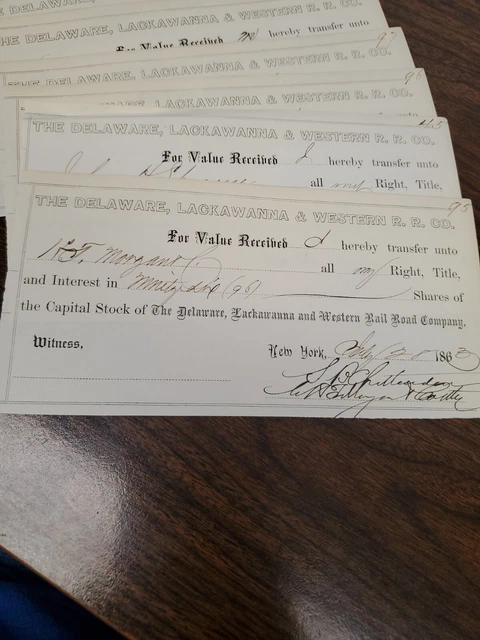 THE DELAWARE, LACKAWANNA & WESTERN R. R. CO.
For Value Received hereby transfer unto
97
THE DELAWARE, LACKAWANNA & WESTERN R. R. CO.
96
LACKAWANNA & WESTERN R. R. CO.
THE DELAWARE, LACKAWANNA & WESTERN R. R. CO.
For Value Received I hereby transfer unto
all my Right, Title,
95
THE DELAWARE, LACKAWANNA & WESTERN R. R. CO.
For Value Received I hereby transfer unto
Morgan all my Right, Title,
and Interest in Ninety Six (96) Shares of
the Capital Stock of The Delaware, Lackawanna and Western Rail Road Company.
Witness, New York, 1863
Chittenden